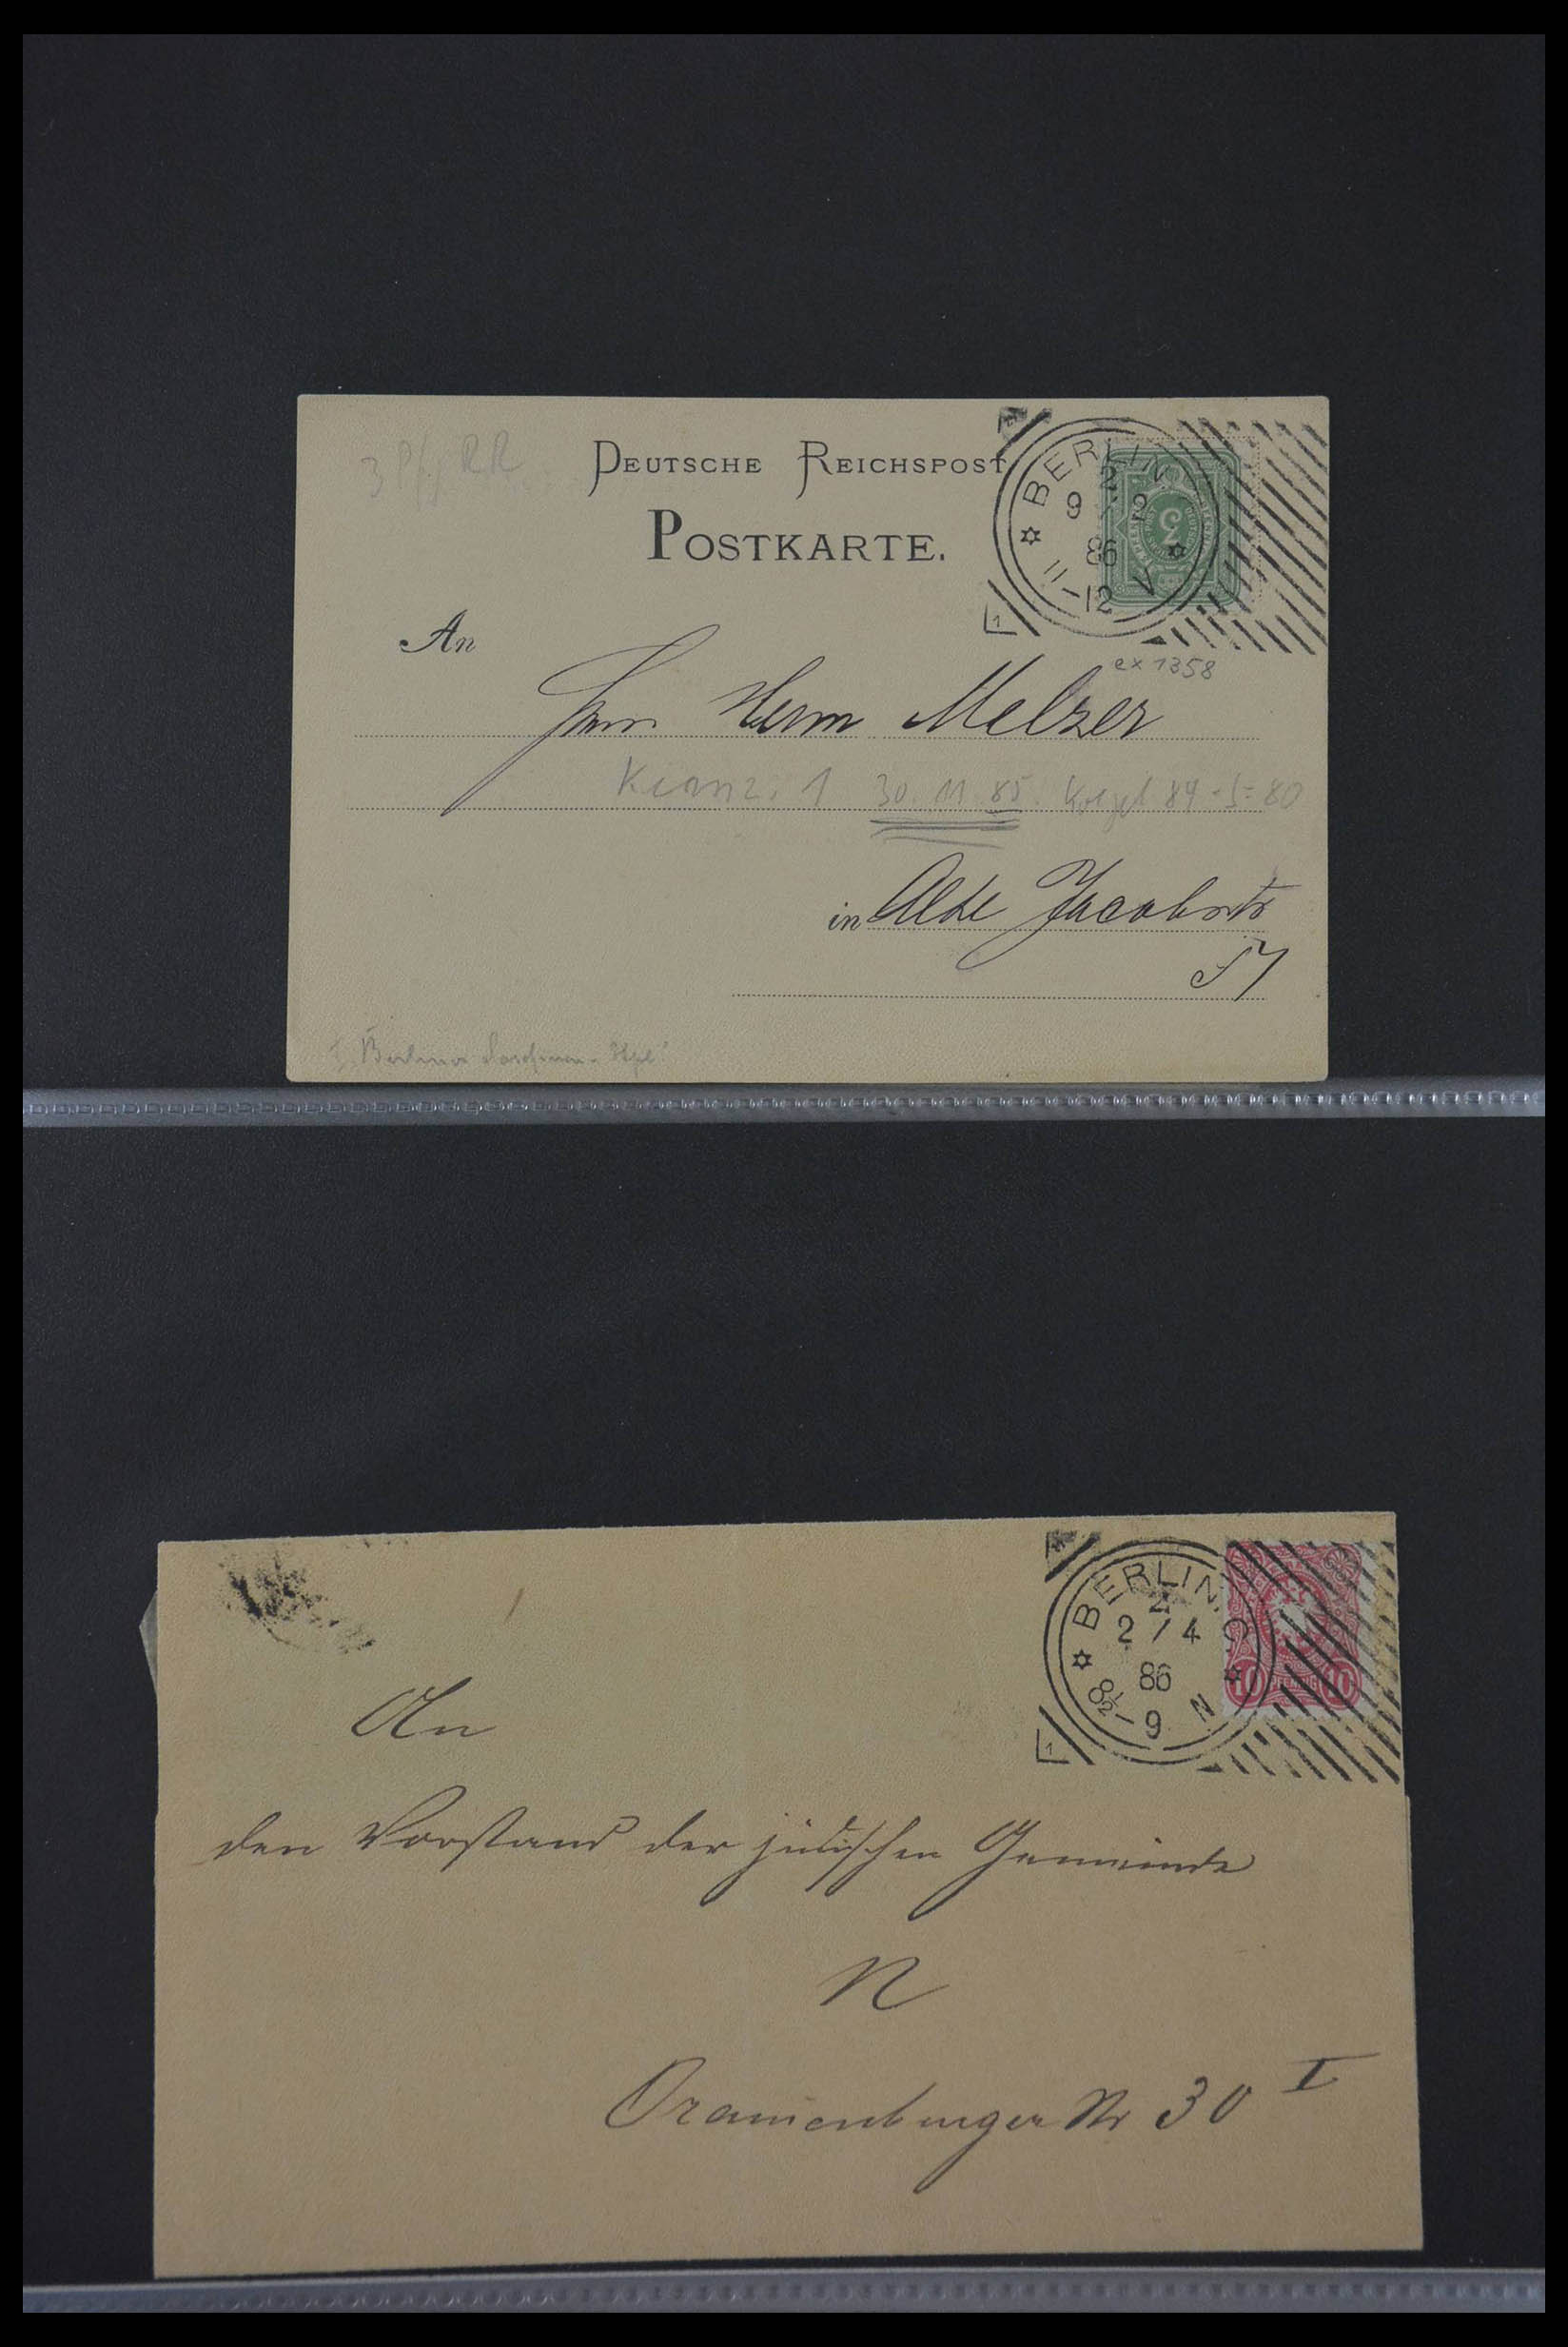 3 Pf. RR
DEUTSCHE REICHSPOST
POSTKARTE.
BERLIN
2
9 2
86
11-12 V
1
ex 1358
An
Herrn Herm Melzer
1 30.11.85. 84-5=80
in Alte Jacobstr
57
Berliner
BERLIN, C
2
2/4
86
8½-9 N
1
10 PFENNIG 10
An
den Vorstand der jüdischen Gemeinde
N
Oranienburger Str 30 I